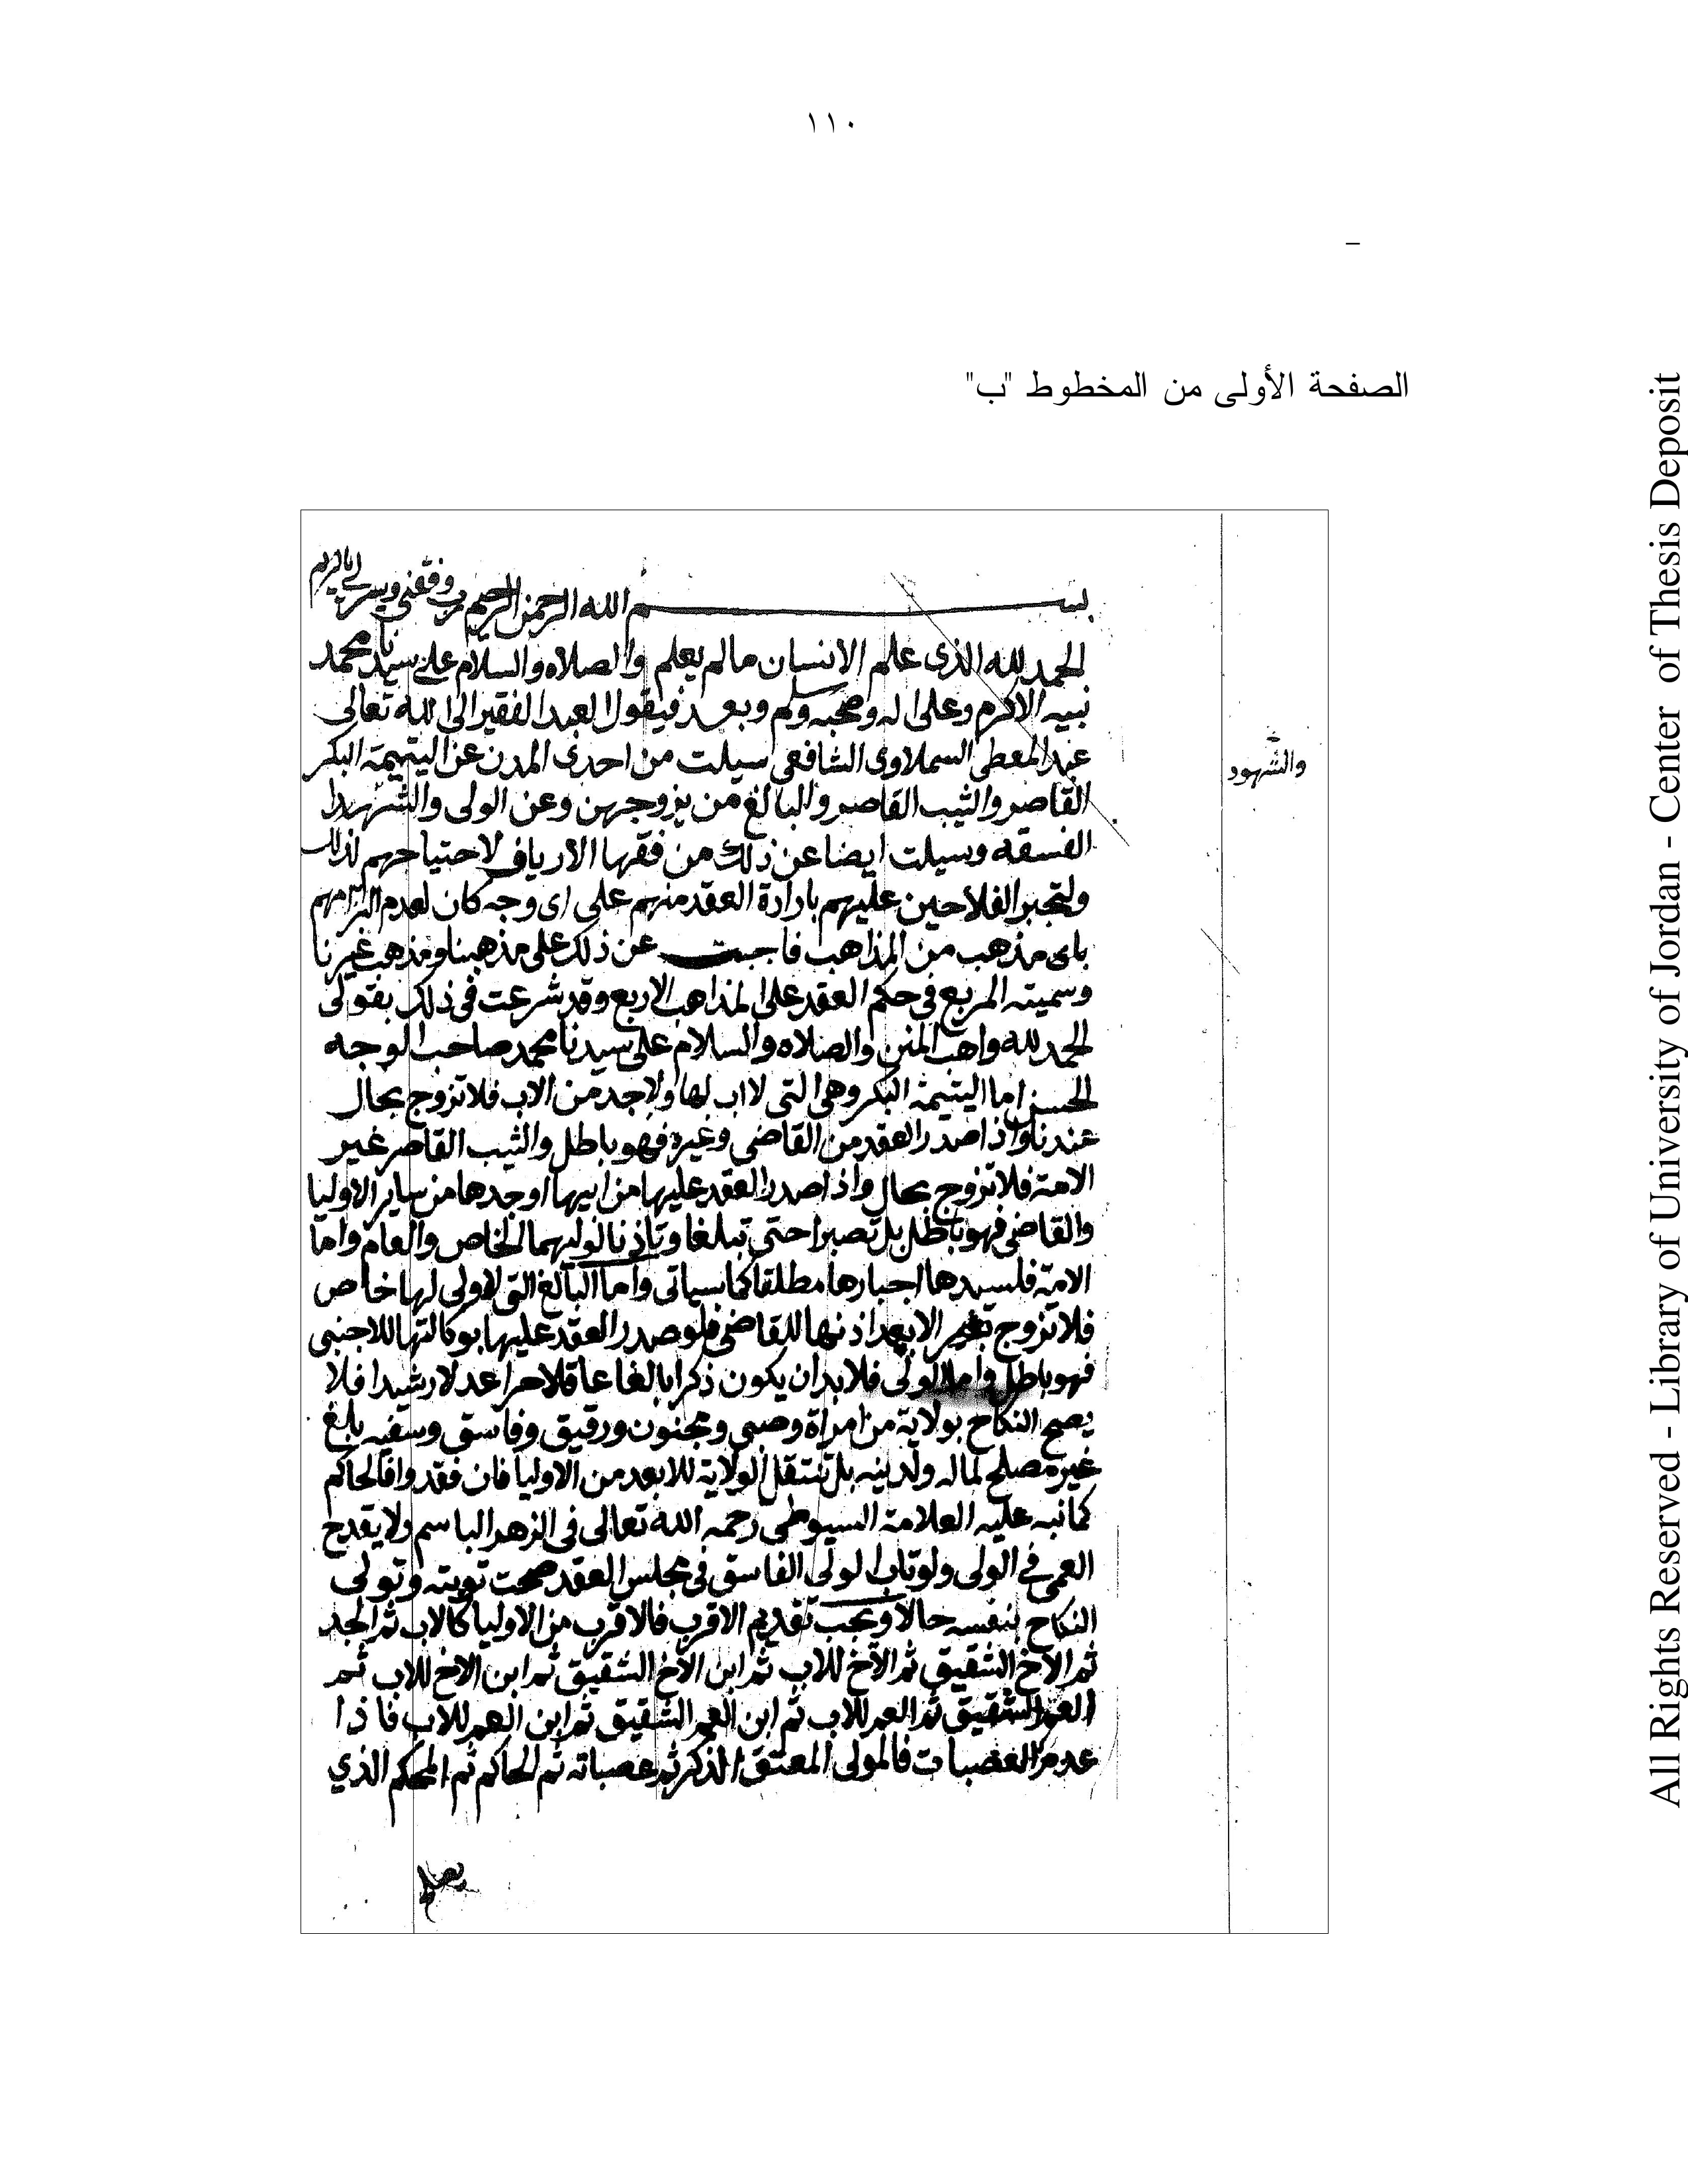 ١١٠
–
الصفحة الأولى من المخطوط "ب"
بسم الله الرحمن الرحيم رب وفقني ويسر لي يا كريم
الحمد لله الذى علم الانسان ما لم يعلم والصلاه والسلام على سيدنا محمد
نبيه الاكرم وعلى اله وصحبه وسلم وبعد فيقول العبد الفقير الى الله تعالى
عبد المعطى السملاوى الشافعى سيلت من احدى المدن عن اليتيمة البكر
والشهود
القاصر والثيب القاصر والبالغ من يزوجهن وعن الولى والشهدا
الفسقه وسيلت ايضا عن ذلك من فقها الارياف لاحتياجهم لذلك
ولتجبر الفلاحين عليهم بارادة العقد منهم على اى وجه كان لعدم التزامهم
باى مذهب من المذاهب فاجبت عن ذلك على مذهبنا ومذهب غيرنا
وسميته المربع في حكم العقد على المذاهب الاربع وقد شرعت في ذلك بقولى
الحمد لله واهب المنن والصلاه والسلام على سيدنا محمد صاحب الوجه
الحسن اما اليتيمة البكر وهى التى لا اب لها ولا جد من الاب فلا تزوج بحال
عندنا واذا صدر العقد من القاضى وغيره فهو باطل والثيب القاصر غير
الامة فلا تزوج بحال واذا صدر العقد عليها من ابيها او جدها من ساير الاوليا
والقاضى فهو باطل بل تصبرا حتى تبلغا وتاذنا لوليهما الخاص والعام واما
الامة فلسيدها اجبارها مطلقا كما سياتى واما البالغ التى لا ولى لها خاص
فلا تزوج الا بعد اذنها للقاضى فلو صدر العقد عليها بوكالتها للاجنبى
فهو باطل واما الولى فلا بد ان يكون ذكرا بالغا عاقلا حرا عدلا رشيدا فلا
يصح النكاح بولاية من امراة وصبى ومجنون ورقيق وفاسق وسفيه بلغ
غير مصلح لماله ولدينه بل تنتقل الولاية للابعد من الاوليا فان فقدوا فالحاكم
كما نبه عليه العلامة السيوطى رحمه الله تعالى فى الزهر الباسم ولا يقدح
العمى في الولى ولو تاب الولى الفاسق فى مجلس العقد صحت توبته وتولى
النكاح بنفسه حالا ويجب تقديم الاقرب فالاقرب من الاوليا كالاب ثم الجد
ثم الاخ الشقيق ثم الاخ للاب ثم ابن الاخ الشقيق ثم ابن الاخ للاب ثم
العم الشقيق ثم العم للاب ثم ابن العم الشقيق ثم ابن العم للاب فاذا
عدم العصبات فالمولى المعتق الذكر ثم عصباته ثم الحاكم ثم المحكم الذي
All Rights Reserved - Library of University of Jordan - Center of Thesis Deposit